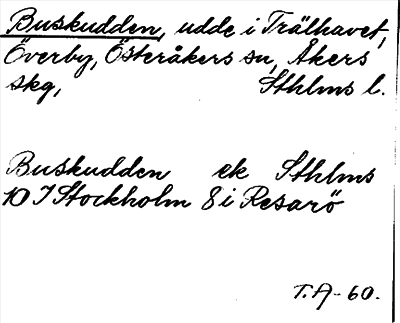 Buskudden, udde i Trälhavet,
Överby, Österåkers sn, Åkers
skg, Sthlms l.
Buskudden ek Sthlms
10 I Stockholm 8 i Resarö
T.A-60.